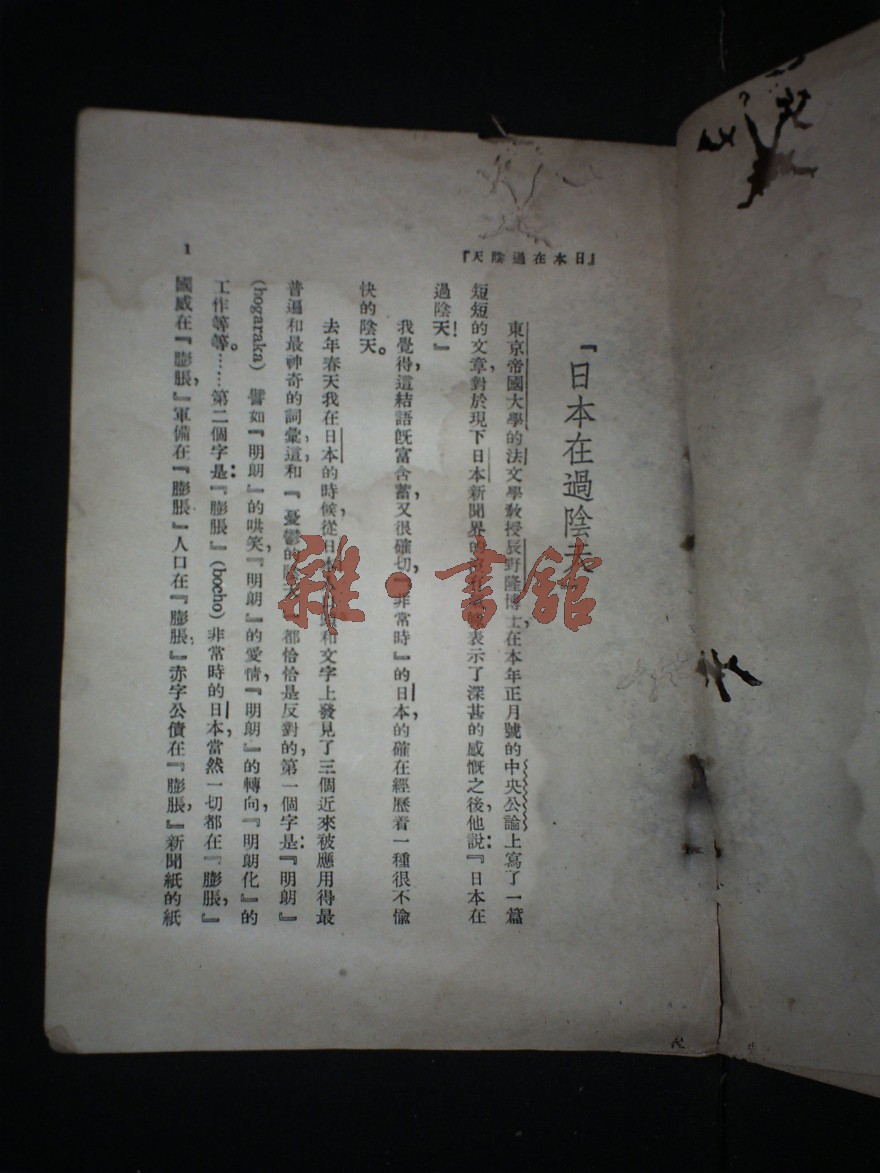 『日本在過陰天』
『日本在過陰天
東京帝國大學的法文學教授辰野隆博士，在本年正月號的中央公論上寫了一篇
短短的文章，對於現下日本新聞界的表示了深甚的感慨之後，他說：『日本在
過陰天！』
我覺得，這結語旣富含蓄，又很確切，『非常時』的日本，的確在經歷着一種很不愉
快的陰天。
去年春天我在日本的時候，從日本和文字上發見了三個近來被應用得最
普遍和最神奇的詞彙，這和『憂鬱的陰天』都恰恰是反對的，第一個字是：『明朗』
(hogaraka) 譬如『明朗』的哄笑，『明朗』的愛情，『明朗』的轉向『明朗化』的
工作等等。……第二個字是：『膨脹』(bocho) 非常時的日本，當然一切都在『膨脹，』
國威在『膨脹，』軍備在『膨脹』人口在『膨脹，』赤字公債在『膨脹，』新聞紙的紙
1
雜·書館